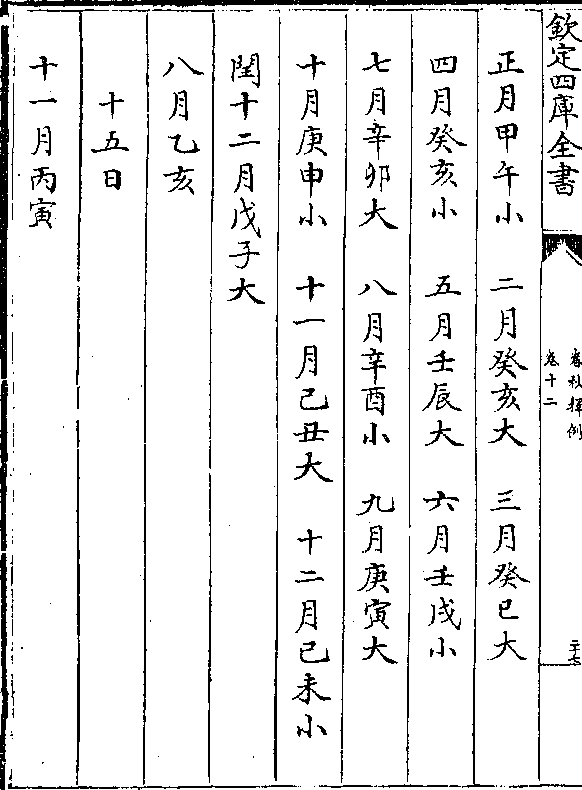 欽定四庫全書
春秋釋例
卷十二
正月甲午小 二月癸亥大 三月癸巳大
四月癸亥小 五月壬辰大 六月壬戌小
七月辛卯大 八月辛酉小 九月庚寅大
十月庚申小 十一月己丑大 十二月己未小
閏十二月戊子大
八月乙亥
十五日
十一月丙寅